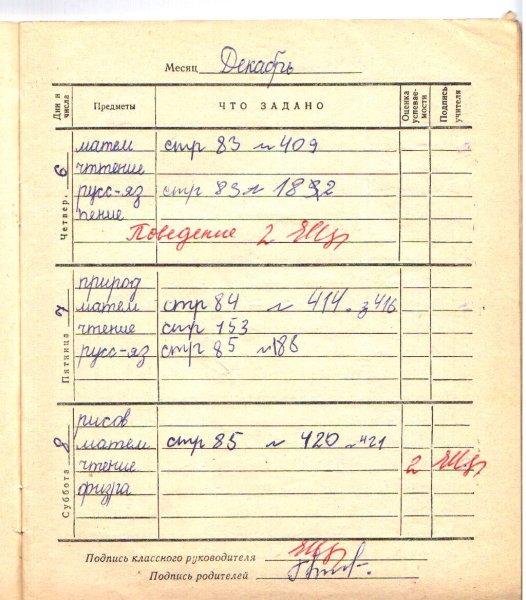 Месяц Декабрь
Дни и числа Предметы ЧТО ЗАДАНО Оценка успевае-мости Подпись учителя
Четвер. 6
матем стр 83 № 409
чттение
русс-яз стр 83 №
пение
Поведение 2
Пятница 7
природ
матем стр 84 № 414. з 416
чтение стр 153
русс-яз стр 85 № 186
Суббота 8
рисов
матем стр 85 № 420 № 421
чтение 2
физра
Подпись классного руководителя
Подпись родителей